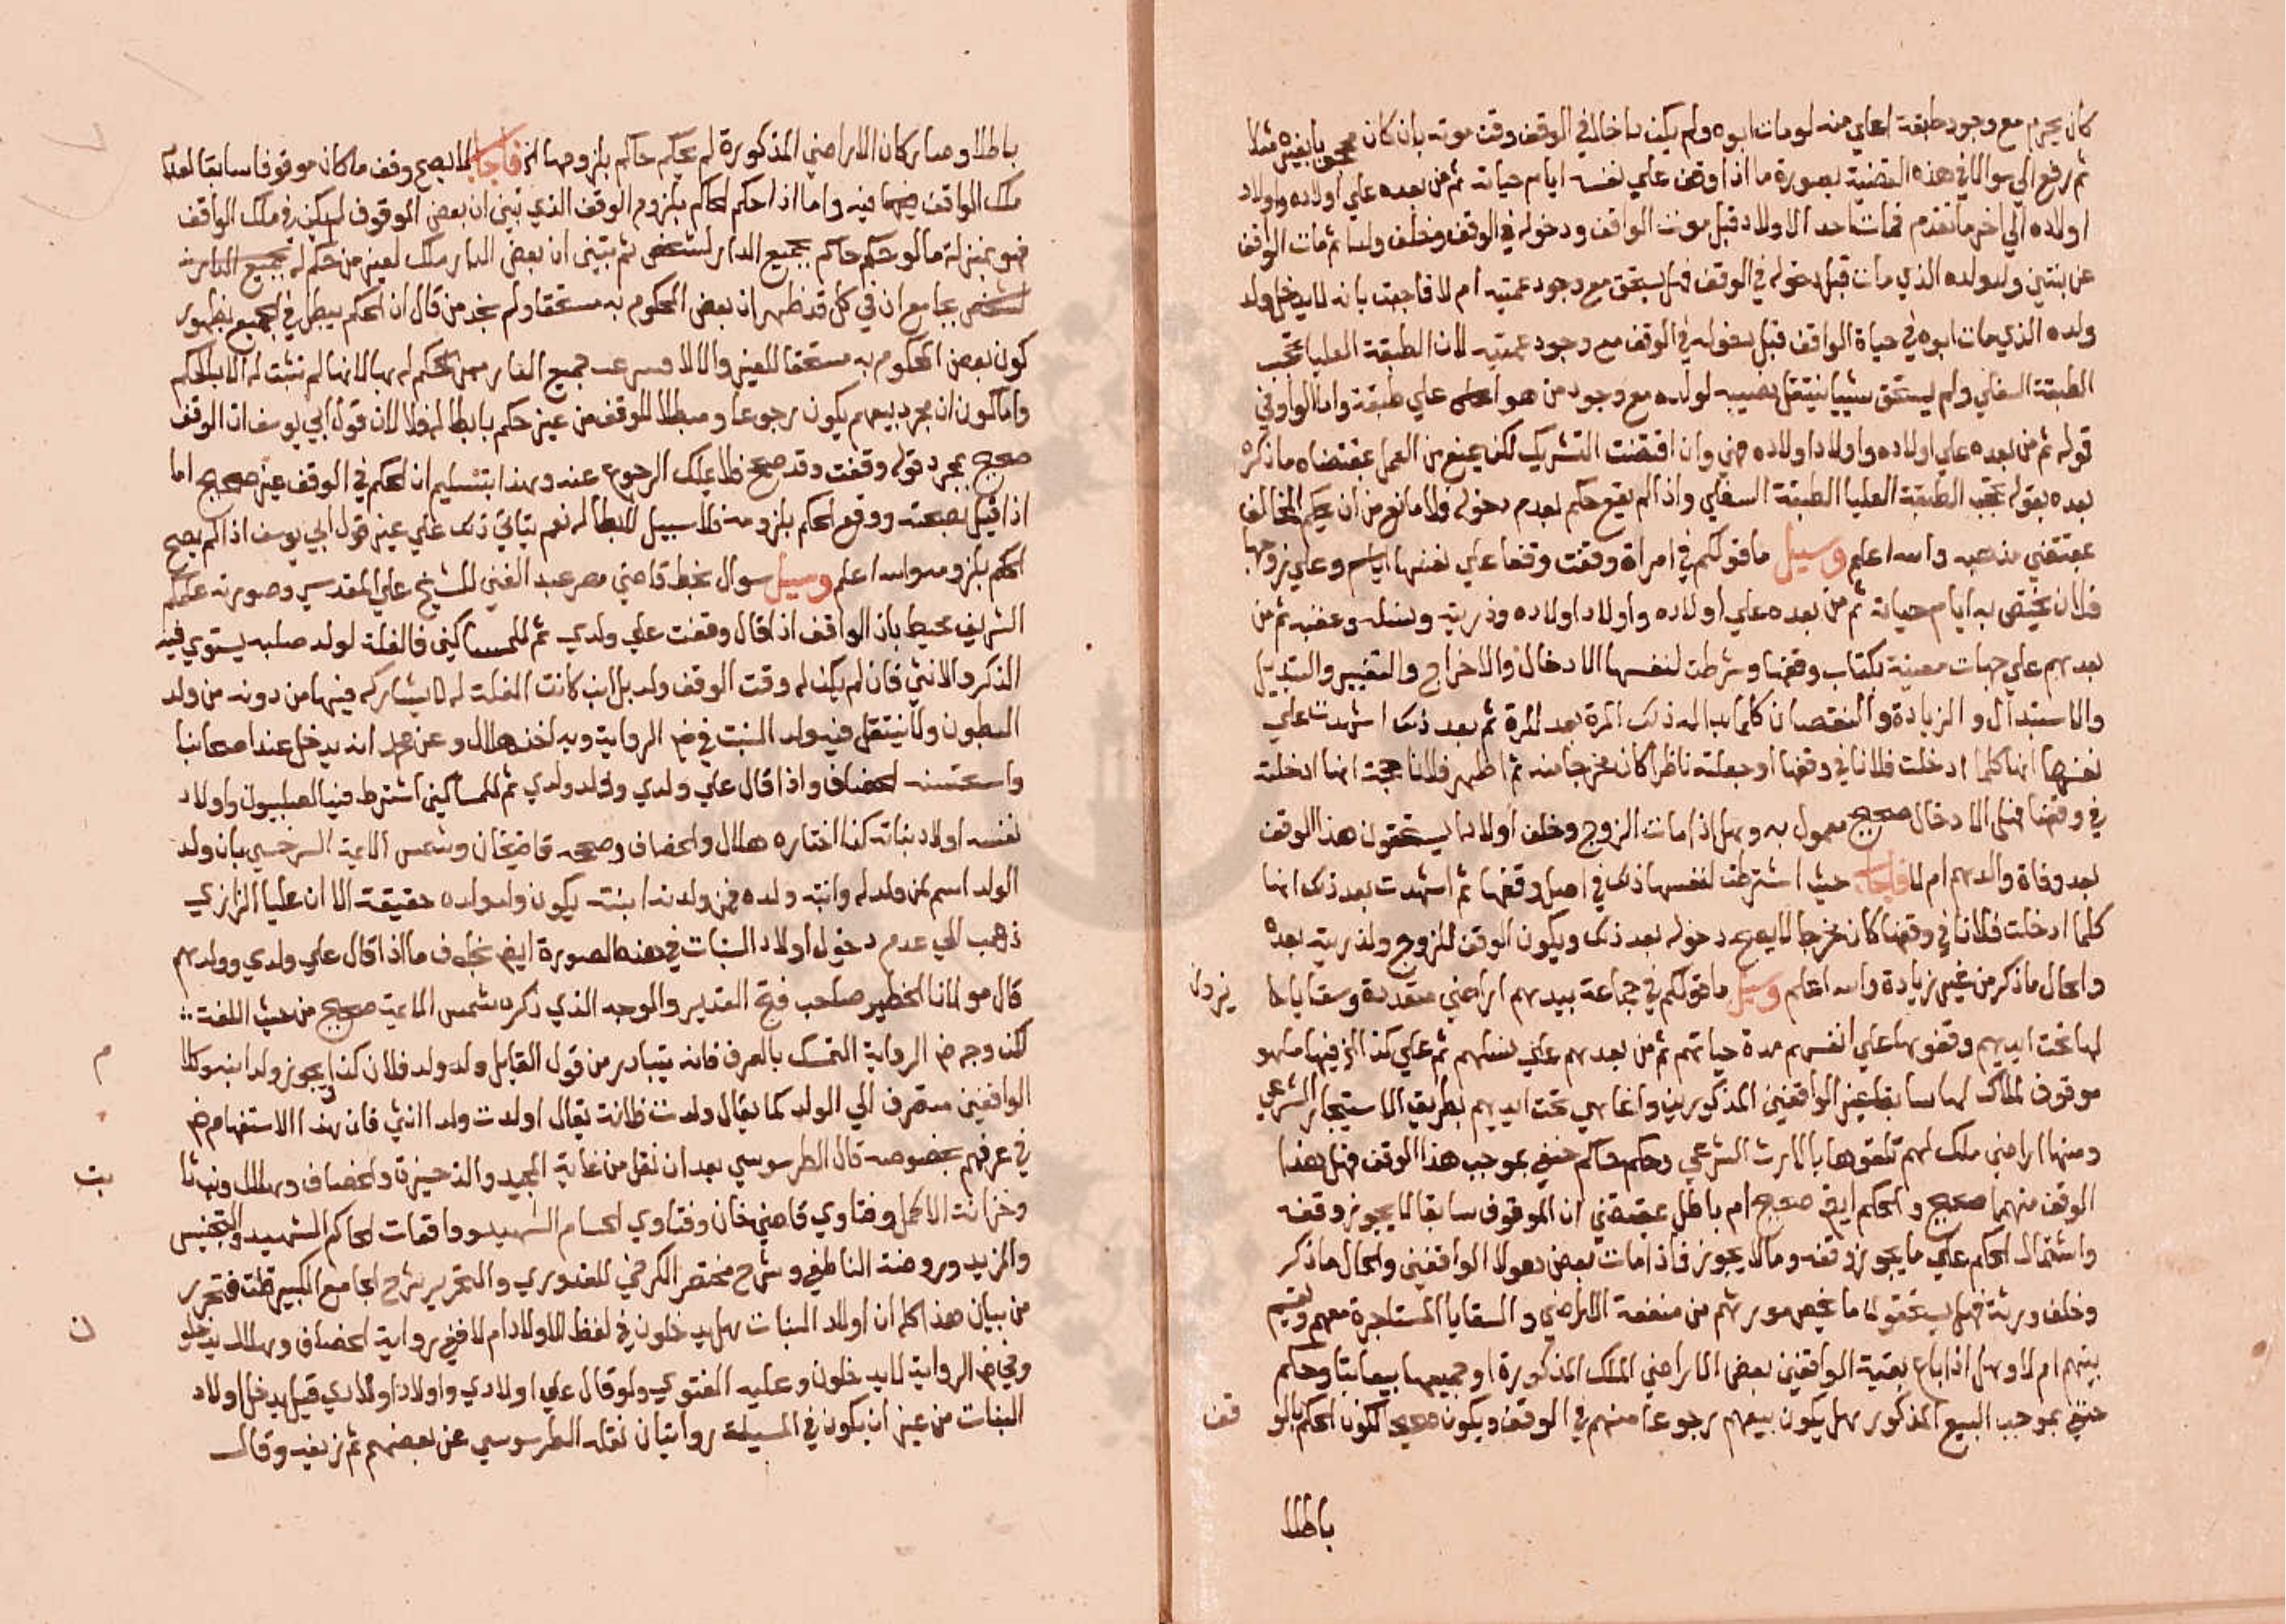 كان يحرم مع وجود طبقة اعلي منه لومات ابوه ولم يكن داخلا في الوقف وقت موته بان كان محجوبا بغيره مثلا
ثم رفع الي سوال في هذه القضية بصورة ما اذا وقف علي نفسه ايام حياته ثم من بعده علي اولاده واولاد
اولاده الي اخر ما تقدم فمات احد الاولاد قبل موت الواقف ودخوله في الوقف وخلف ولدا ثم مات الواقف
عن بنتين وولد ولده الذي مات قبل دخوله في الوقف فهل يستحق مع وجود عمتيه ام لا فاجبت بانه لا يدخل ولد
ولده الذي مات ابوه في حياة الواقف قبل دخوله في الوقف مع وجود عمتيه لان الطبقة العليا تحجب
الطبقة السفلي ولم يستحق شييا لينتقل نصيبه لولده مع وجود من هو اعلي علي طبقة وان الواو في
قوله ثم من بعده علي اولاده واولاد اولاده هي وان اقتضت التشريك لكن يمنع من العمل بمقتضاه ما ذكره
بعده بقوله تحجب الطبقة العليا الطبقة السفلي واذا لم يقع حكم بعدم دخوله ولا مانع من ان يحكم المخالف
بمقتضي مذهبه والله اعلم وسيل ما قولكم في امراة وقفت وقفا علي نفسها ايام وعلي زوجها
فلان يختص به ايام حياته ثم من بعده علي اولاده واولاد اولاده وذريته ونسله وعقبه ثم من
بعدهم علي جهات معينة بكتاب وقفها وشرطت لنفسها الادخال والاخراج والتغيير والتبديل
والاستبدال والزيادة والنقصان كلما بدا له ذلك المرة بعد المرة ثم بعد ذلك اشهدت علي
نفسها انها كلما ادخلت فلانا في وقفها او جعلته ناظرا كان مخرجا منه ثم اظهر فلانا حجة انها ادخلته
في وقفها فهل الادخال صحيح معمول به وهل اذا مات الزوج وخلف اولادا يستحقون هذا الوقف
بعد وفاة والدهم ام لا فاجاب حيث اشترطت لنفسها ذلك في اصل وقفها ثم اشهدت بعد ذلك انها
كلما ادخلت فلانا في وقفها كان مخرجا لا يصح دخوله بعد ذلك ويكون الوقف للزوج ولذريته بعده
والحال ما ذكر من غير زيادة والله اعلم وسيل ما قولكم في جماعة بيدهم اراضي متعددة وسقايا لا
لها تحت ايديهم وقفوها علي انفسهم مدة حياتهم ثم من بعدهم علي نسلهم ثم علي كذا الخ فيها ما هو
موقوف لملاك لها سابقا غير الواقفين المذكورين وانما هي تحت ايديهم بطريق الاستيجار الشرعي
ومنها اراضي ملك لهم تلقوها بالارث الشرعي وحكم حاكم حنفي بموجب هذا الوقف فهل هذا
الوقف منهما صحيح والحكم ايض صحيح ام باطل بمقتضي ان الموقوف سابقا لا يجوز وقفه
واشتمال الحكم علي ما يجوز وقفه وما لا يجوز فاذا مات بعض هولا الواقفين والحال ما ذكر
وخلف ورثة فهل يستحقون ما يخص مورثهم من منفعة الاراضي والسقايا المستاجرة معهم ويقسم
بينهم ام لا وهل اذا باع بقية الواقفين بعض الاراضي الملك المذكورة او جميعها بيعا باتا وحكم
حنفي بموجب البيع المذكور هل يكون بيعهم رجوعا منهم في الوقف ويكون صحيحا لكون الحكم بالو
قف
باطلا
باطلا وصار كان الاراضي المذكورة لم يحكم حاكم بلزومها الخ فاجاب لا يصح وقف ما كان موقوفا سابقا لعدم
ملك الواقف فيما فيه واما اذا حكم الحاكم بلزوم الوقف الذي تبين ان بعض الموقوف لم يكن في ملك الواقف
فهو بمنزلة ما لو حكم حاكم بجميع الدار لشخص ثم تبين ان بعض الدار ملك لغير من حكم له بجميع الدار
لشخص بجامع ان في كل قد ظهر ان بعض المحكوم به مستحقا ولم نجد من قال ان الحكم يبطل في الجميع بظهور
كون بعض المحكوم به مستحقا للغير والا لا جميع الدار ممن حكم له بها لانها لم تثبت له الا بالحكم
واما كون ان مجرد بيعهم يكون رجوعا ومبطلا للوقف من غير حكم بابطاله فلا لان قول ابي يوسف ان الوقف
صحيح بمجرد قوله وقفت وقد صحح فلا يملك الرجوع عنه وهذا بتسليم ان الحكم في الوقف غير صحيح اما
اذا قيل بصحته ووقع الحكم بلزومه فلا سبيل لابطاله نعم يتاتي ذلك علي غير قول ابي يوسف اذا لم يصح
الحكم بلزومه والله اعلم وسيل سوال بخط قاضي مصر عبد الغني للشيخ علي المقدسي وصورته علمكم
الشريف محيط بان الواقف اذا قال وقفت علي ولدي ثم للمساكين فالغلة لولد صلبه يستوي فيه
الذكر والانثي فان لم يكن له وقت الوقف ولد بل ابن كانت الغلة له لا يشاركه فيها من دونه من ولد
البطون ولا ينتقل فيه ولد البنت في ض الرواية وبه اخذ هلال وعن محمد انه يدخل عند اصحابنا
واستحسنه الخصاف واذا قال علي ولدي وولد ولدي ثم للمساكين اشترط فيه الصلبيون واولاد
نفسه اولاد بناته كذا اختاره هلال والخصاف وصححه قاضيخان وشمس الايمة السرخسي بان ولد
الولد اسم لمن ولد له وابنته ولده فمن ولدته ابنته يكون ولد ولده حقيقة الا ان عليا الرازي
ذهب الي عدم دخول اولاد البنات في هذه الصورة ايض بخلاف ما اذا قال علي ولدي وولدهم
قال مولانا الخطير صاحب فتح القدير والوجه الذي ذكره شمس الايمة صحيح من حيث اللغة
لكن وجه ض الرواية التمسك بالعرف فانه يتبادر من قول القايل ولد ولد فلان كذا يجوز ولد ابنه وكلا
م
الواقفين منصرف الي الولد كما يقال ولدت فلانة يقال اولدت ولدا انثي فان هذا الاستفهام ض
في عرفهم بخصوصه قال الطرسوسي بعد ان نقل من غاية المجيد والذخيرة والخصاف وهلال وبثا
بت
وخزانة الاكمل وفتاوي قاضي خان وفتاوي الحسام الشهيد وواقعات الحاكم الشهيد والتجنيس
والمزيد وروضة الناطفي وشرح مختصر الكرخي للقدوري والتحرير شرح الجامع الكبير قلت فتحرر
من بيان هذا كله ان اولاد البنات هل يدخلون في لفظ الاولاد ام لا ففي رواية الخصاف وهلال يدخلو
ن
وفي ض الرواية لا يدخلون وعليه الفتوي ولو قال علي اولادي واولاد اولادي قيل يدخل اولاد
البنات من غير ان يكون في المسيلة روايتان نقله الطرسوسي عن بعضهم ثم زيفه وقال